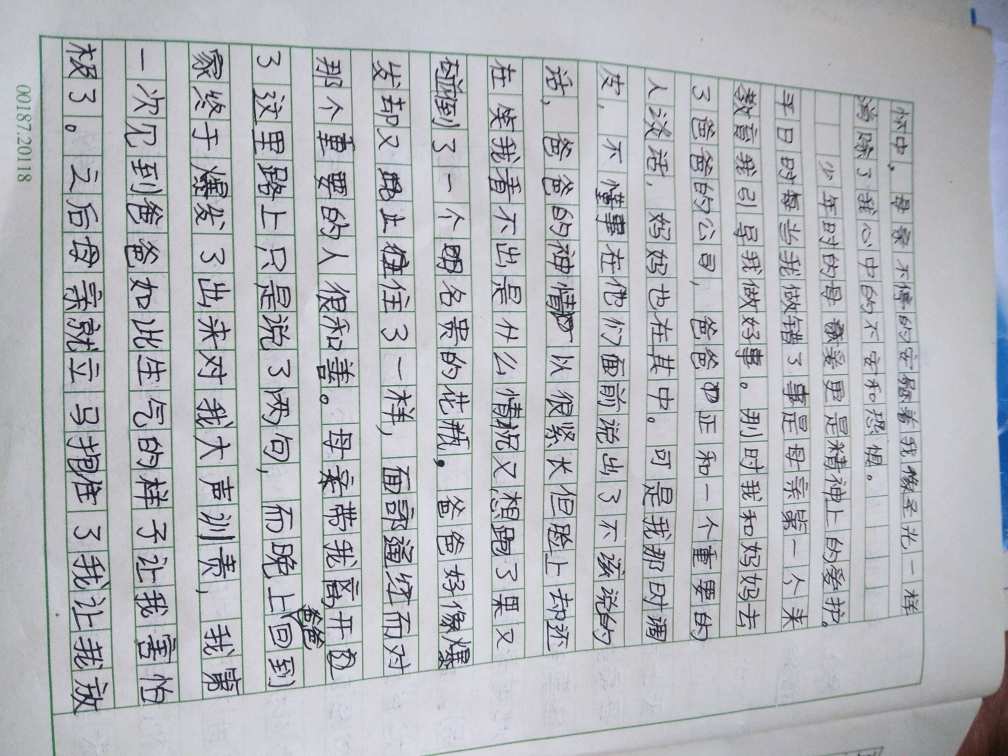 怀中，母亲不停的安慰着我像圣光一样
消除了我心中的不安和恐惧。
少年时的母亲爱更是精神上的爱护。
平日时每当我做错了事是母亲第一个来
教育我引导我做好事。那时我和妈妈去
了爸爸的公司，爸爸正和一个重要的
人谈话，妈妈也在其中。可是我那时调
皮，不懂事在他们面前说出了不该说的
话，爸爸的神情以很紧长但脸上却还
在笑我看不出是什么情况又想跑了果又
碰到了一个名贵的花瓶。爸爸好像爆
发却又止住了一样，面部通红而对
那个重要的人很和善。母亲带我离开
了这里路上只是说了两句，而晚上爸爸回到
家终于爆发了出来对我大声训责，我第
一次见到爸爸如此生气的样子让我害怕
极了。之后母亲就立马抱住了我让我放
00187.20118